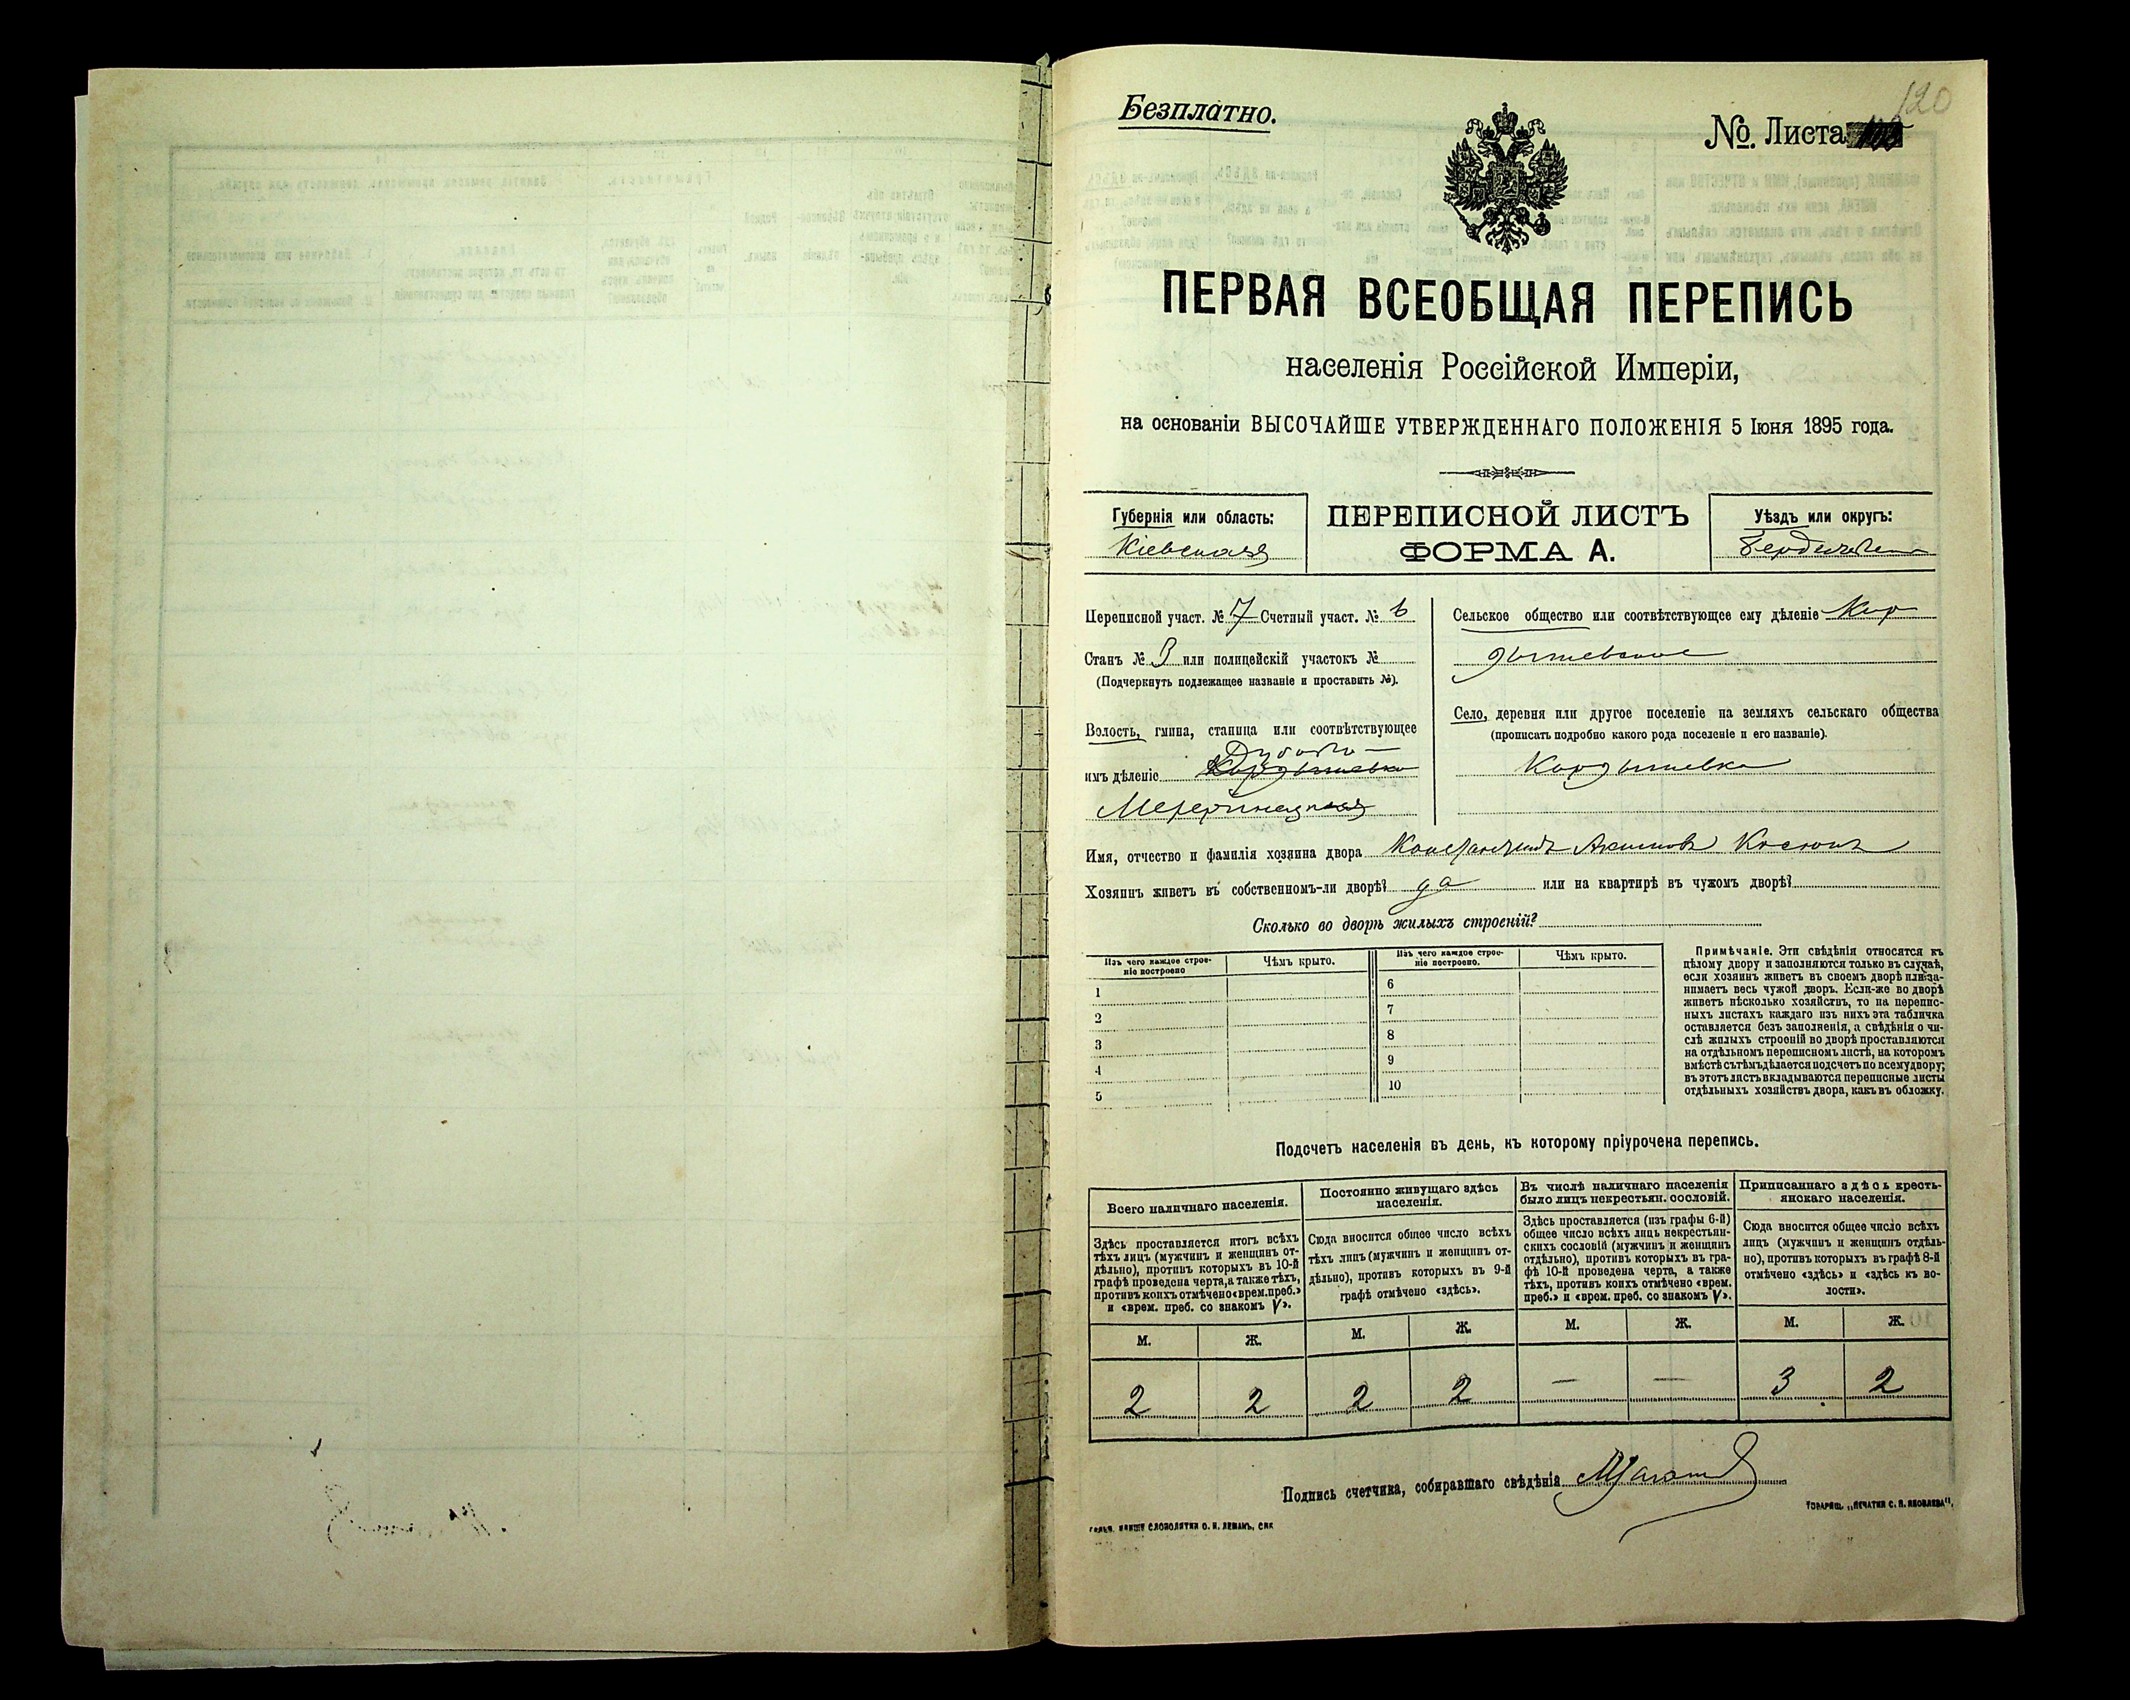 120
Безплатно.
№. Листа
ПЕРВАЯ ВСЕОБЩАЯ ПЕРЕПИСЬ
населенія Россійской Имперіи,
на основаніи ВЫСОЧАЙШЕ УТВЕРЖДЕННАГО ПОЛОЖЕНІЯ 5 Іюня 1895 года.
Губернія или область:
Кіевская
ПЕРЕПИСНОЙ ЛИСТЪ
ФОРМА А.
Уѣздъ или округъ:
Переписной участ. № 7 Счетный участ. № 6
Станъ № 3 или полицейскій участокъ №
(Подчеркнуть подлежащее названіе и проставить №).
Волость, гмина, станица или соотвѣтствующее
имъ дѣленіе
Сельское общество или соотвѣтствующее ему дѣленіе Кор
дышевское
Село, деревня или другое поселеніе на земляхъ сельскаго общества
(прописать подробно какого рода поселеніе и его названіе).
Кордышевка
Имя, отчество и фамилія хозяина двора Константинъ Акимовъ Косюкъ
Хозяинъ живетъ въ собственномъ-ли дворѣ? да или на квартирѣ въ чужомъ дворѣ?
Сколько во дворѣ жилыхъ строеній?
Изъ чего каждое строе-
ніе построено
Чѣмъ крыто.
Изъ чего каждое строе-
ніе построено.
Чѣмъ крыто.
1
2
3
4
5
6
7
8
9
10
Примѣчаніе. Эти свѣдѣнія относятся къ
цѣлому двору и заполняются только въ случаѣ,
если хозяинъ живетъ въ своемъ дворѣ или за-
нимаетъ весь чужой дворъ. Если-же во дворѣ
живетъ нѣсколько хозяйствъ, то на перепис-
ныхъ листахъ каждаго изъ нихъ эта табличка
оставляется безъ заполненія, а свѣдѣнія о чи-
слѣ жилыхъ строеній во дворѣ проставляются
на отдѣльномъ переписномъ листѣ, на которомъ
вмѣстѣ съ тѣмъ дѣлается подсчетъ по всему двору;
въ этотъ листъ вкладываются переписные листы
отдѣльныхъ хозяйствъ двора, какъ въ обложку.
Подсчетъ населенія въ день, къ которому пріурочена перепись.
Всего наличнаго населенія.
Здѣсь проставляется итогъ всѣхъ
тѣхъ лицъ (мужчинъ и женщинъ от-
дѣльно), противъ которыхъ въ 10-й
графѣ проведена черта, а также тѣхъ,
противъ коихъ отмѣчено «врем. преб.»
и «врем. преб. со знакомъ V».
Постоянно живущаго здѣсь
населенія.
Сюда вносится общее число всѣхъ
тѣхъ лицъ (мужчинъ и женщинъ от-
дѣльно), противъ которыхъ въ 9-й
графѣ отмѣчено «здѣсь».
Въ числѣ наличнаго населенія
было лицъ некрестьян. сословій.
Здѣсь проставляется (изъ графы 6-й)
общее число всѣхъ лицъ некрестьян-
скихъ сословій (мужчинъ и женщинъ
отдѣльно), противъ которыхъ въ гра-
фѣ 10-й проведена черта, а также
тѣхъ, противъ коихъ отмѣчено «врем.
преб.» и «врем. преб. со знакомъ V».
Приписаннаго здѣсь кресть-
янскаго населенія.
Сюда вносится общее число всѣхъ
лицъ (мужчинъ и женщинъ отдѣль-
но), противъ которыхъ въ графѣ 8-й
отмѣчено «здѣсь» и «здѣсь къ во-
лости».
М. Ж. М. Ж. М. Ж. М. Ж.
2 2 2 2 — — 3 2
Подпись счетчика, собиравшаго свѣдѣнія
ТОВАРИЩ. „ПЕЧАТНЯ С. П. ЯКОВЛЕВА“.
СЛОВОЛИТНЯ О. И. ЛЕМАНЪ, СПБ